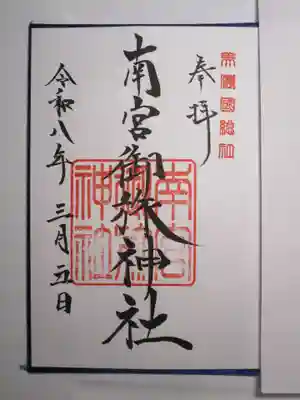 美濃國總社
奉拝
南宮御旅神社
南宮御旅神社
令和八年 三月五日